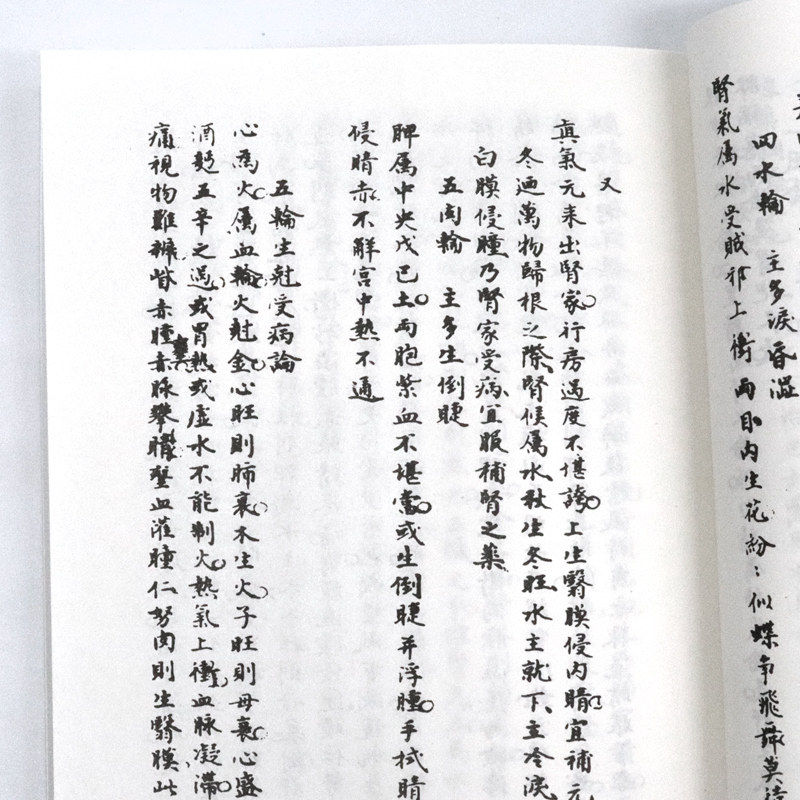 四水輪　主多淚昏澀
腎氣属水受賊邪上衝兩目內生花紛〻似蝶爭飛舞莫
又
真氣元来出腎家行房過度不堪誇上生翳膜侵內睛宜補元
冬迊萬物歸根之際腎候属水秋生冬旺水主就下主冷淚
白膜侵瞳乃腎家受病宜服補腎之藥
五肉輪　主多生倒睫
脾属中央戊己土兩胞紫血不堪當或生倒睫并浮腫手拭睛
侵睛赤不解宮中熱不通
五輪生尅受病論
心為火属血輪火尅金心旺則肺衰木生火子旺則母衰心盛
酒麪五辛之過或胃熱或虛水不能制火熱氣上衝血脉凝滯
痛視物難眥赤腫赤脉攀睛血灌瞳仁努肉則生翳膜此